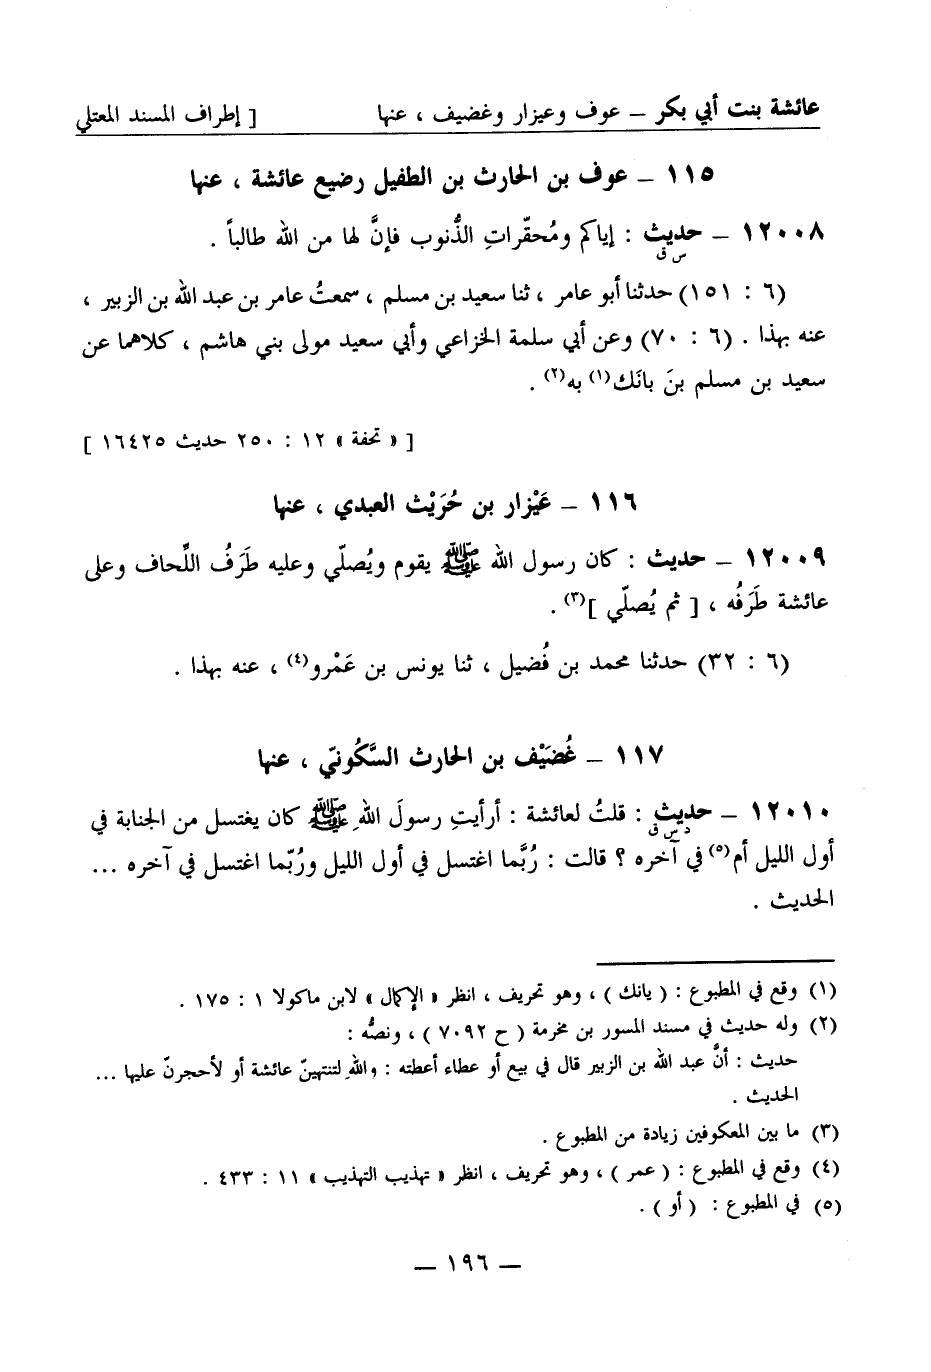 عائشة بنت أبي بكر – عوف وعيزار وغضيف ، عنها [ إطراف المسند المعتلي
١١٥ – عوف بن الحارث بن الطفيل رضيع عائشة ، عنها
١٢٠٠٨ – حديث : إياكم ومُحقّراتِ الذُّنوب فإنَّ لها من الله طالباً .
س ق
(٦ : ١٥١) حدثنا أبو عامر ، ثنا سعيد بن مسلم ، سمعتُ عامر بن عبد الله بن الزبير ،
عنه بهذا . (٦ : ٧٠) وعن أبي سلمة الخزاعي وأبي سعيد مولى بني هاشم ، كلاهما عن
سعيد بن مسلم بنَ بانَك(١) به(٢) .
[ « تحفة » ١٢ : ٢٥٠ حديث ١٦٤٢٥ ]
١١٦ – عَيْزار بن حُرَيْث العبدي ، عنها
١٢٠٠٩ – حديث : كان رسول الله ﷺ يقوم ويُصلّي وعليه طَرَفُ اللّحاف وعلى
عائشة طَرَفُه ، [ ثم يُصلّي ](٣) .
(٦ : ٣٢) حدثنا محمد بن فُضيل ، ثنا يونس بن عَمْرو(٤) ، عنه بهذا .
١١٧ – غُضَيْف بن الحارث السَّكُونيّ ، عنها
١٢٠١٠ – حديث : قلتُ لعائشة : أرأيتِ رسولَ اللهِ ﷺ كان يغتسل من الجنابة في
د س ق
أول الليل أم(٥) في آخره ؟ قالت : رُبَّما اغتسل في أول الليل ورُبّما اغتسل في آخره ...
الحديث .
(١) وقع في المطبوع : ( يانك ) ، وهو تحريف ، انظر « الإكمال » لابن ماكولا ١ : ١٧٥ .
(٢) وله حديث في مسند المسور بن مخرمة ( ح ٧٠٩٢ ) ، ونصُّه :
حديث : أنَّ عبد الله بن الزبير قال في بيع أو عطاء أعطته : واللهِ لتنتهينّ عائشة أو لأحجرنّ عليها ...
الحديث .
(٣) ما بين المعكوفين زيادة من المطبوع .
(٤) وقع في المطبوع : ( عمر ) ، وهو تحريف ، انظر « تهذيب التهذيب » ١١ : ٤٣٣ .
(٥) في المطبوع : ( أو ) .
– ١٩٦ –